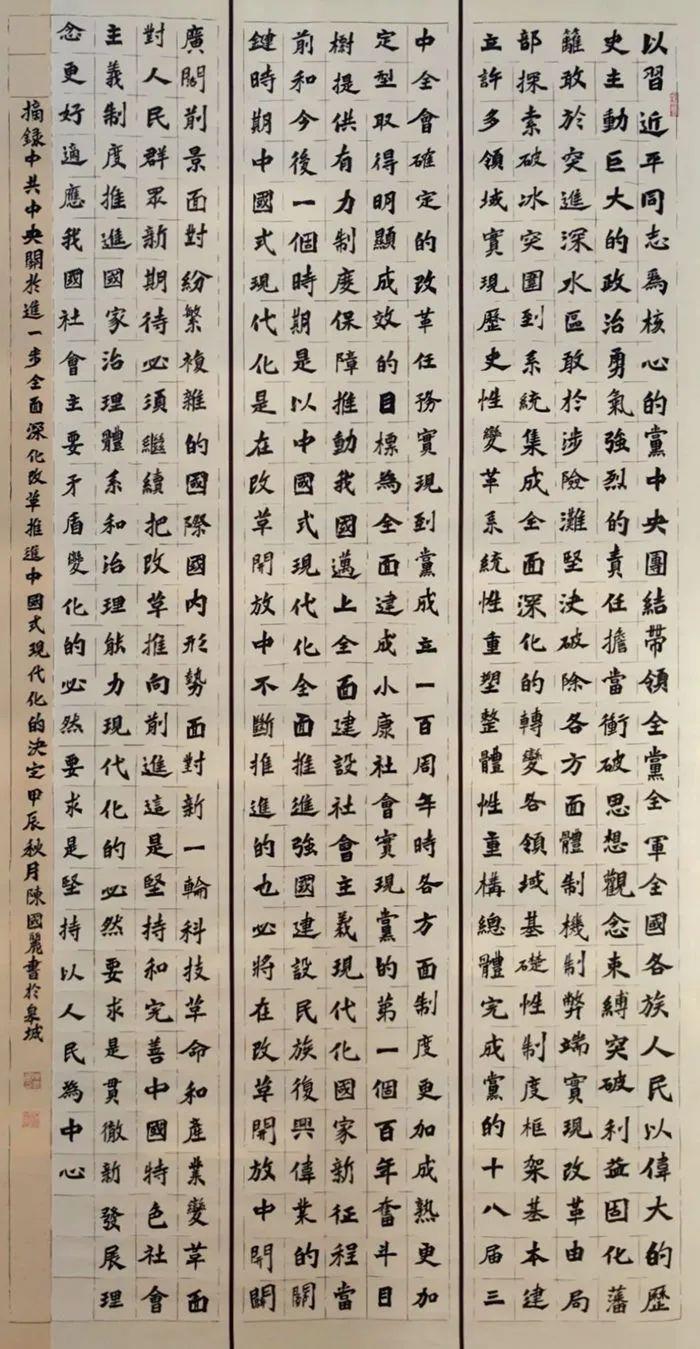 以習近平同志爲核心的黨中央團結帶領全黨全軍全國各族人民以偉大的歷
史主動巨大的政治勇氣強烈的責任擔當衝破思想觀念束縛突破利益固化藩
籬敢於突進深水區敢於涉險灘堅決破除各方面體制機制弊端實現改革由局
部探索破冰突圍到系統集成全面深化的轉變各領域基礎性制度框架基本建
立許多領域實現歷史性變革系統性重塑整體性重構總體完成黨的十八届三
中全會確定的改革任務實現到黨成立一百周年時各方面制度更加成熟更加
定型取得明顯成效的目標為全面建成小康社會實現黨的第一個百年奮斗目
樹提供有力制度保障推動我國邁上全面建設社會主義現代化國家新征程當
前和今後一個時期是以中國式現代化全面推進強國建設民族復興偉業的關
鍵時期中國式現代化是在改革開放中不斷推進的也必將在改革開放中開闢
廣闊前景面對紛繁複雜的國際國内形勢面對新一輪科技革命和產業變革面
對人民群眾新期待必須繼續把改革推向前進這是堅持和完善中國特色社會
主義制度推進國家治理體系和治理能力現代化的必然要求是貫徹新發展理
念更好適應我國社會主要矛盾變化的必然要求是堅持以人民為中心
摘錄中共中央關於進一步全面深化改革推進中國式現代化的決定甲辰秋月陳國麗書於泉城